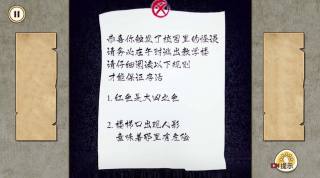 恭喜你触发了校园里的怪谈
请务必在午时逃出教学楼
请仔细阅读以下规则
才能保证存活
1.红色是大凶之色
2.楼梯口出现人影
意味着那里有危险
提示